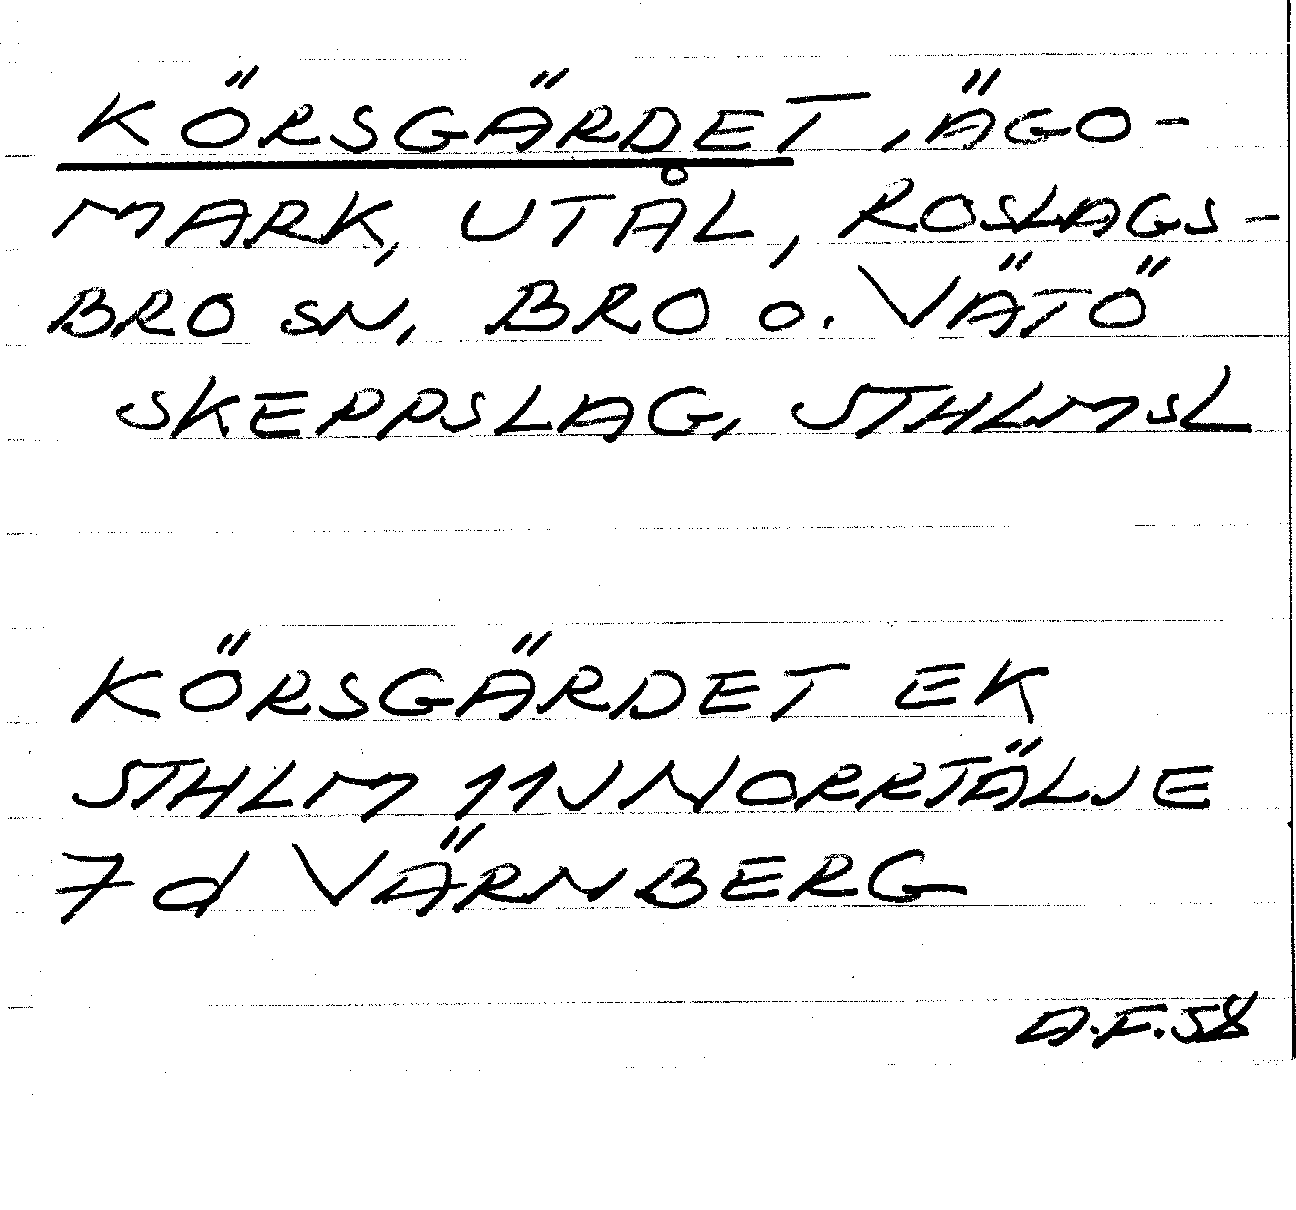 KÖRSGÄRDET, ÄGO-
MARK, UTÅL, ROSLAGS-
BRO SN, BRO o. VÄTÖ
SKEPPSLAG, STHLMSL
KÖRSGÄRDET EK
STHLM 11J NORRTÄLJE
7d VÄRNBERG
A.F.58